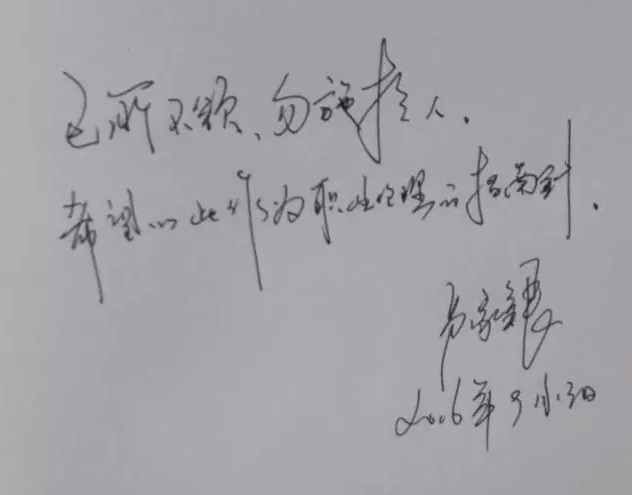 己所不欲、勿施于人.
希望以此作为职业管理的指南针.
2006年9月30日